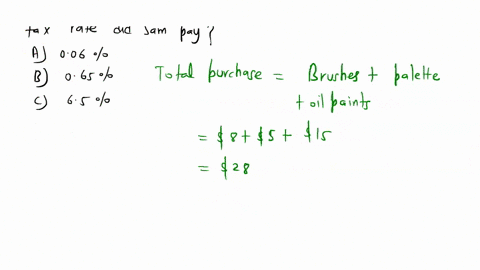 tax rate did sam pay?
A) 0.06 %
B) 0.65 %
C) 6.5 %
Total purchase = Brushes + palette
+ oil paints
= $8 + $5 + $15
= $28